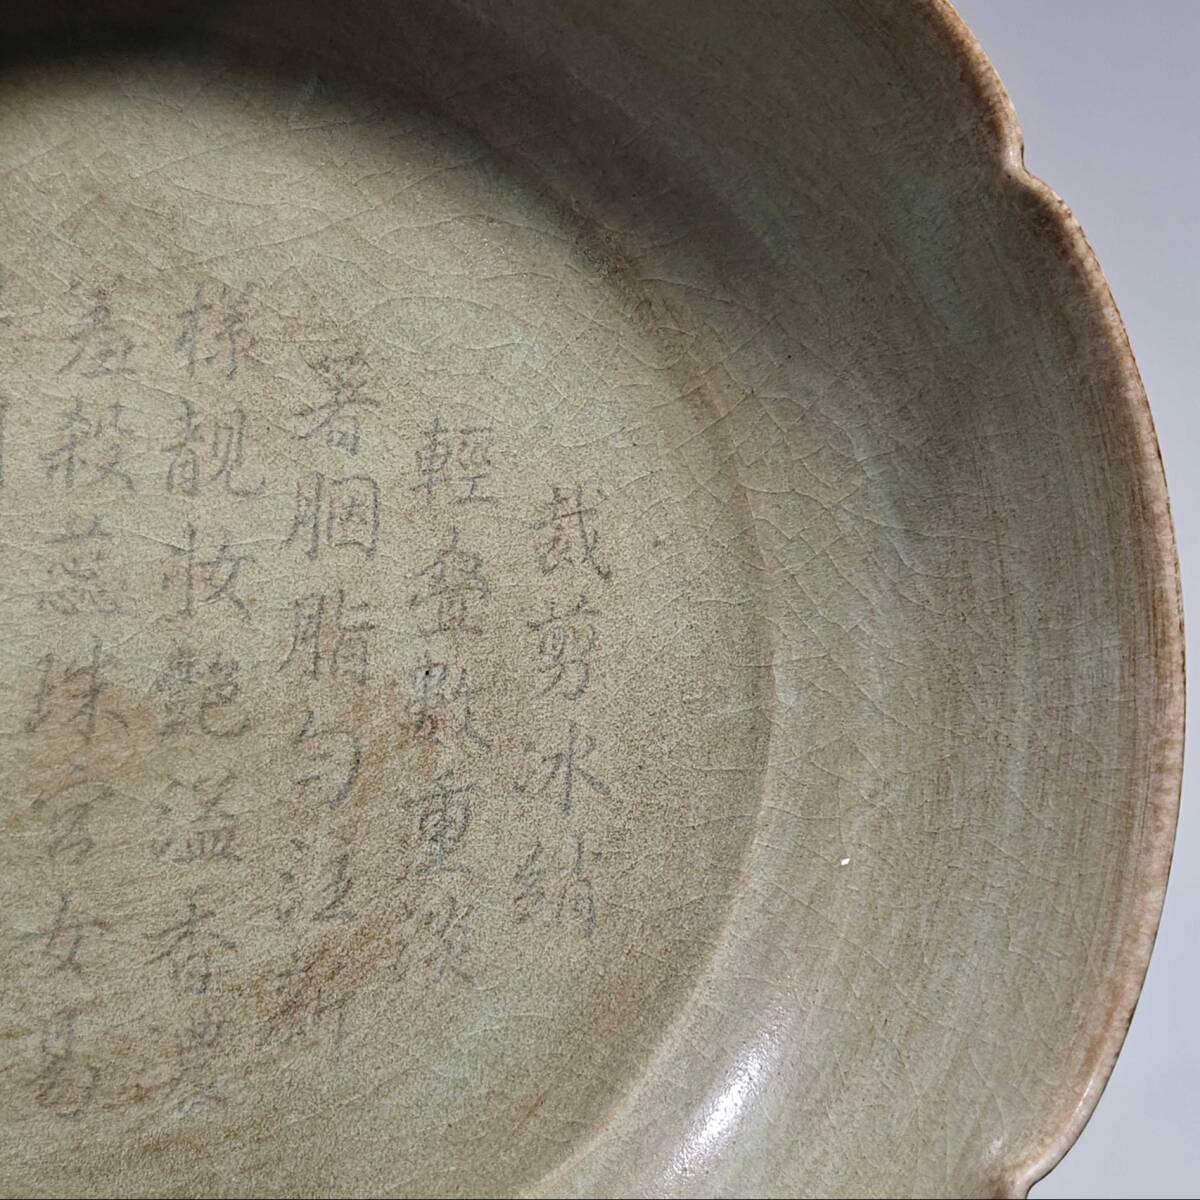 裁剪冰綃
輕疊數重淡
著胭脂勻注新
樣靚妝艶溢香
羞殺蕊珠宮女易